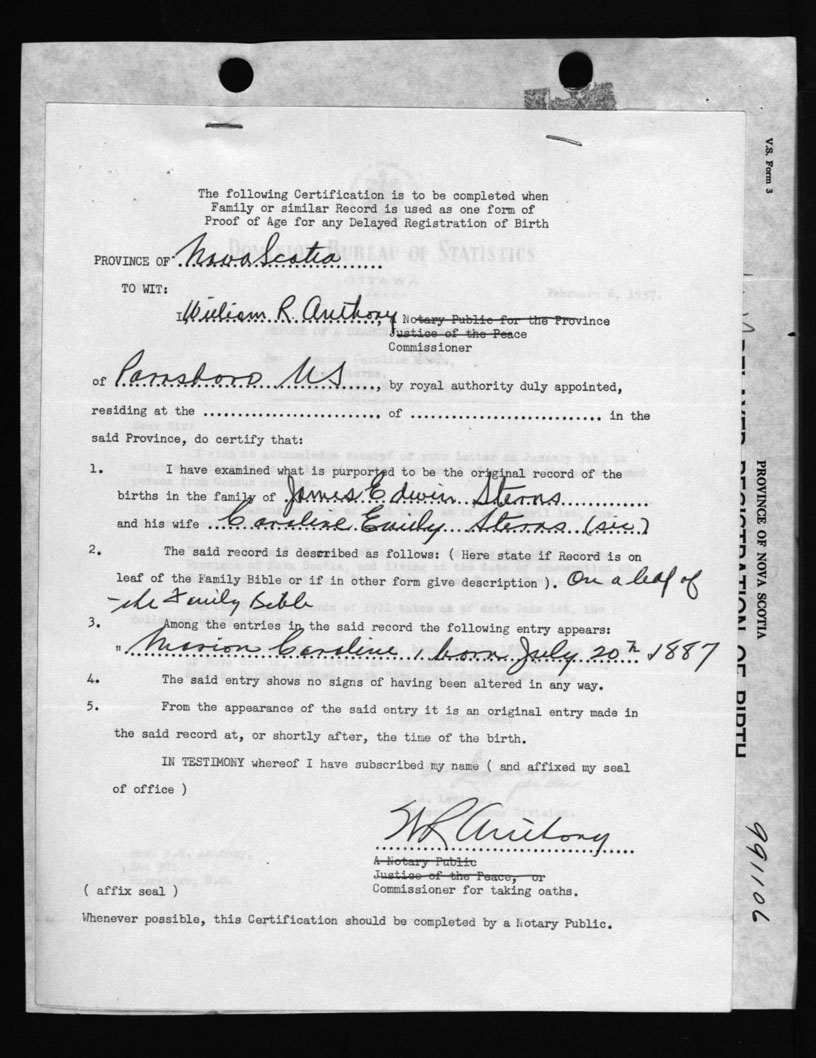 The following Certification is to be completed when
Family or similar Record is used as one form of
Proof of Age for any Delayed Registration of Birth
DOMINION BUREAU OF STATISTICS
OTTAWA
PROVINCE OF Nova Scotia
February 6, 1957.
TO WIT:
I William R. Anthony, A Notary Public for the Province
Justice of the Peace
Commissioner
of Parrsboro NS, by royal authority duly appointed,
residing at the .......................... of ............................ in the
said Province, do certify that:
1. I have examined what is purported to be the original record of the
births in the family of James Edwin Sterns
and his wife Caroline Emily Sterns (sic)
2. The said record is described as follows: ( Here state if Record is on
leaf of the Family Bible or if in other form give description ). On a leaf of
the Family Bible
3. Among the entries in the said record the following entry appears:
" Marion Caroline, born July 20th 1887
4. The said entry shows no signs of having been altered in any way.
5. From the appearance of the said entry it is an original entry made in
the said record at, or shortly after, the time of the birth.
IN TESTIMONY whereof I have subscribed my name ( and affixed my seal
of office )
W R Anthony
A Notary Public
Justice of the Peace, or
( affix seal ) Commissioner for taking oaths.
Whenever possible, this Certification should be completed by a Notary Public.
V.S. Form 3
PROVINCE OF NOVA SCOTIA
DELAYED REGISTRATION OF BIRTH
991106